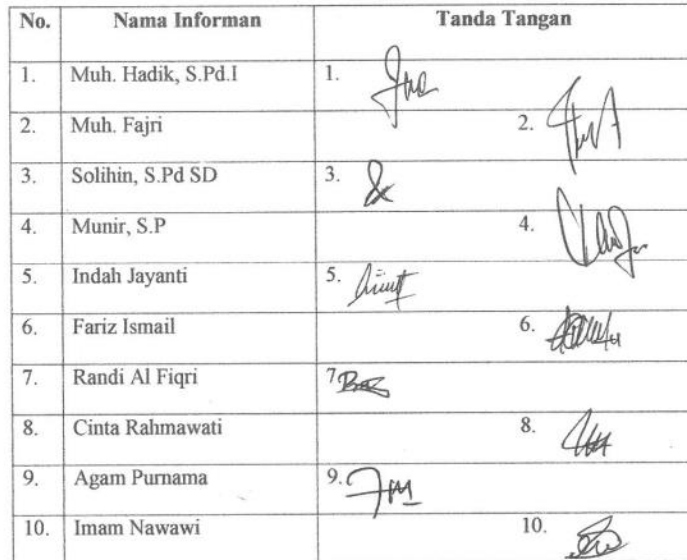 No. Nama Informan Tanda Tangan
1. Muh. Hadik, S.Pd.I 1.
2. Muh. Fajri 2.
3. Solihin, S.Pd SD 3.
4. Munir, S.P 4.
5. Indah Jayanti 5.
6. Fariz Ismail 6.
7. Randi Al Fiqri 7
8. Cinta Rahmawati 8.
9. Agam Purnama 9.
10. Imam Nawawi 10.